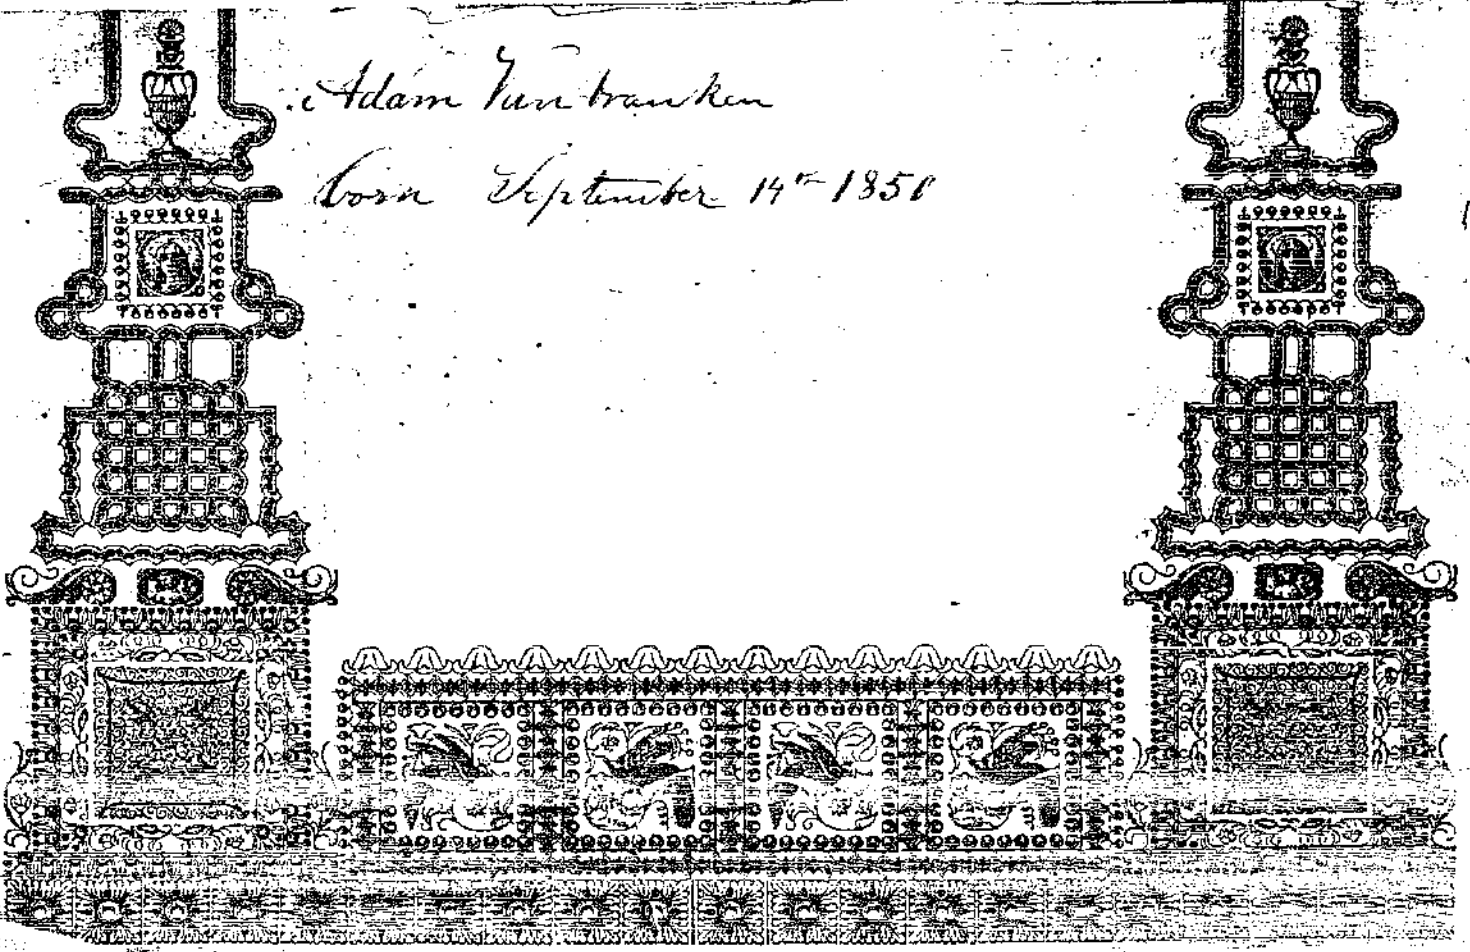 Adam Van vranken
born September 14th 1850